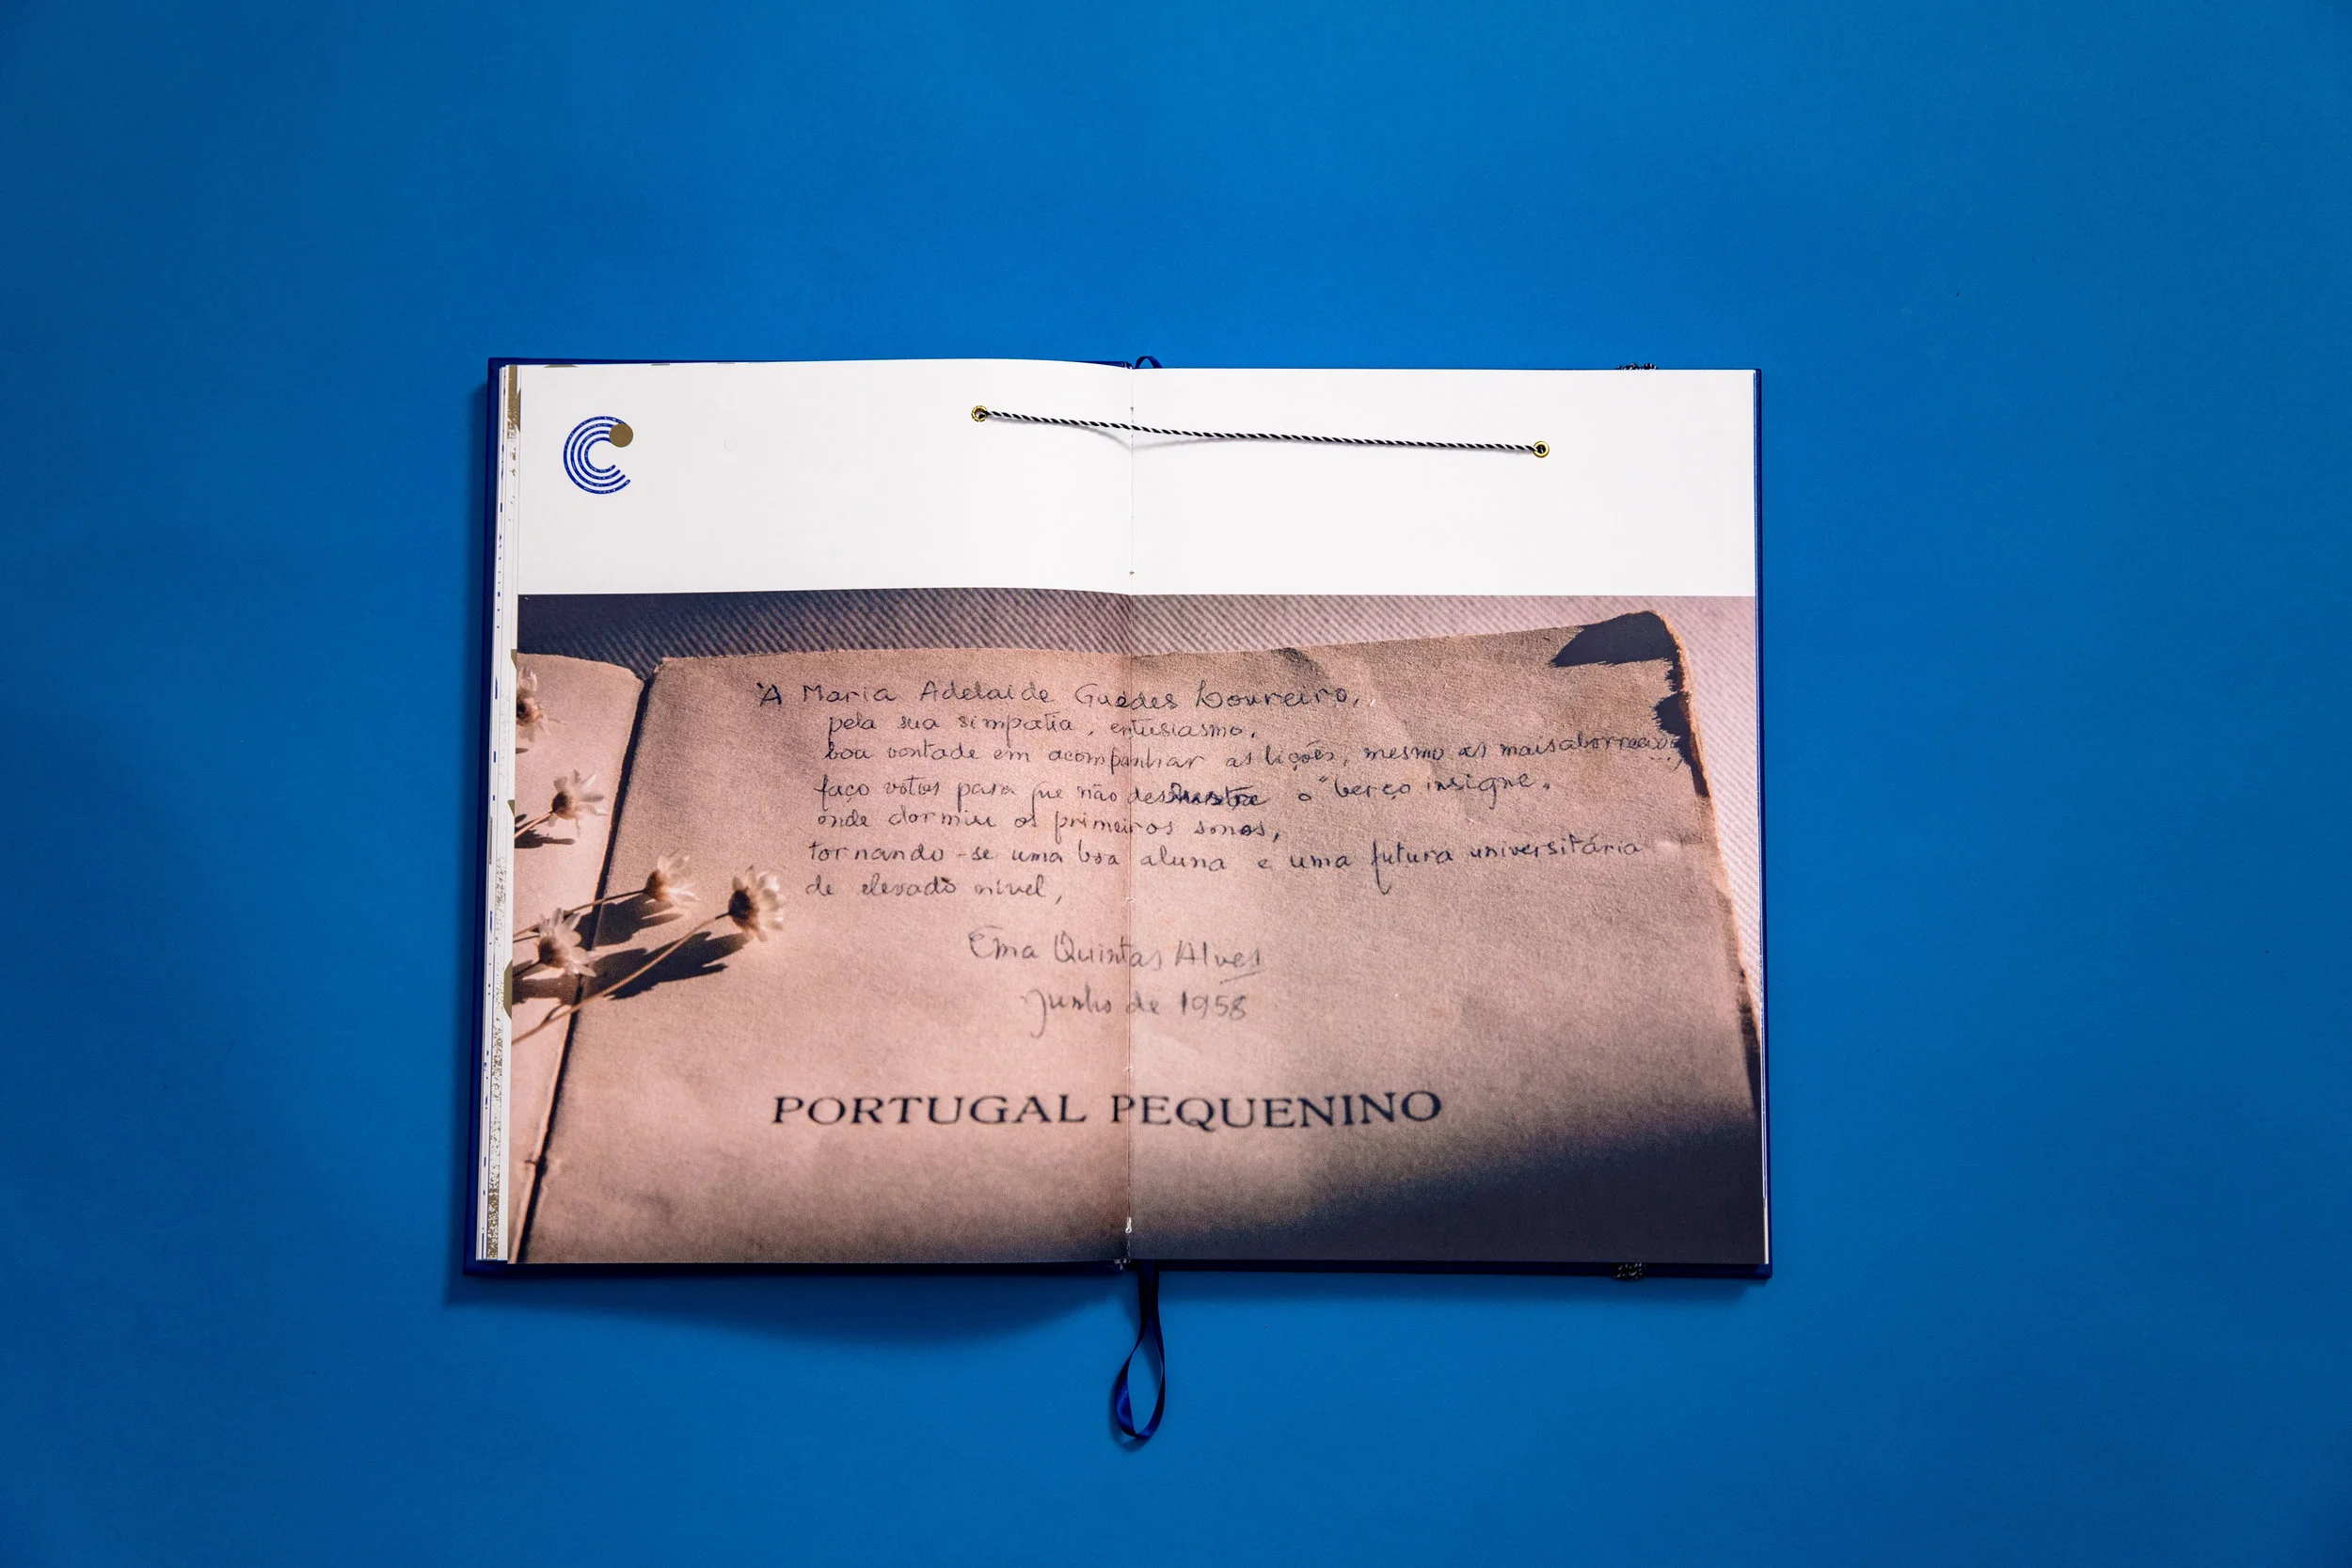 À Maria Adelaide Guedes Loureiro,
pela sua simpatia, entusiasmo,
boa vontade em acompanhar as lições, mesmo as mais aborrecidas,
faço votos para que não deslustre o "berço insigne"
onde dormiu os primeiros sonos,
tornando-se uma boa aluna e uma futura universitária
de elevado nível,
Ema Quintas Alves
Junho de 1958
PORTUGAL PEQUENINO